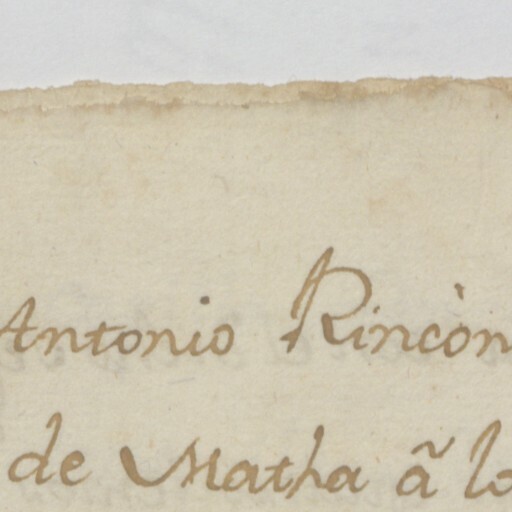 Antonio Rincòn
de Matha ã lo